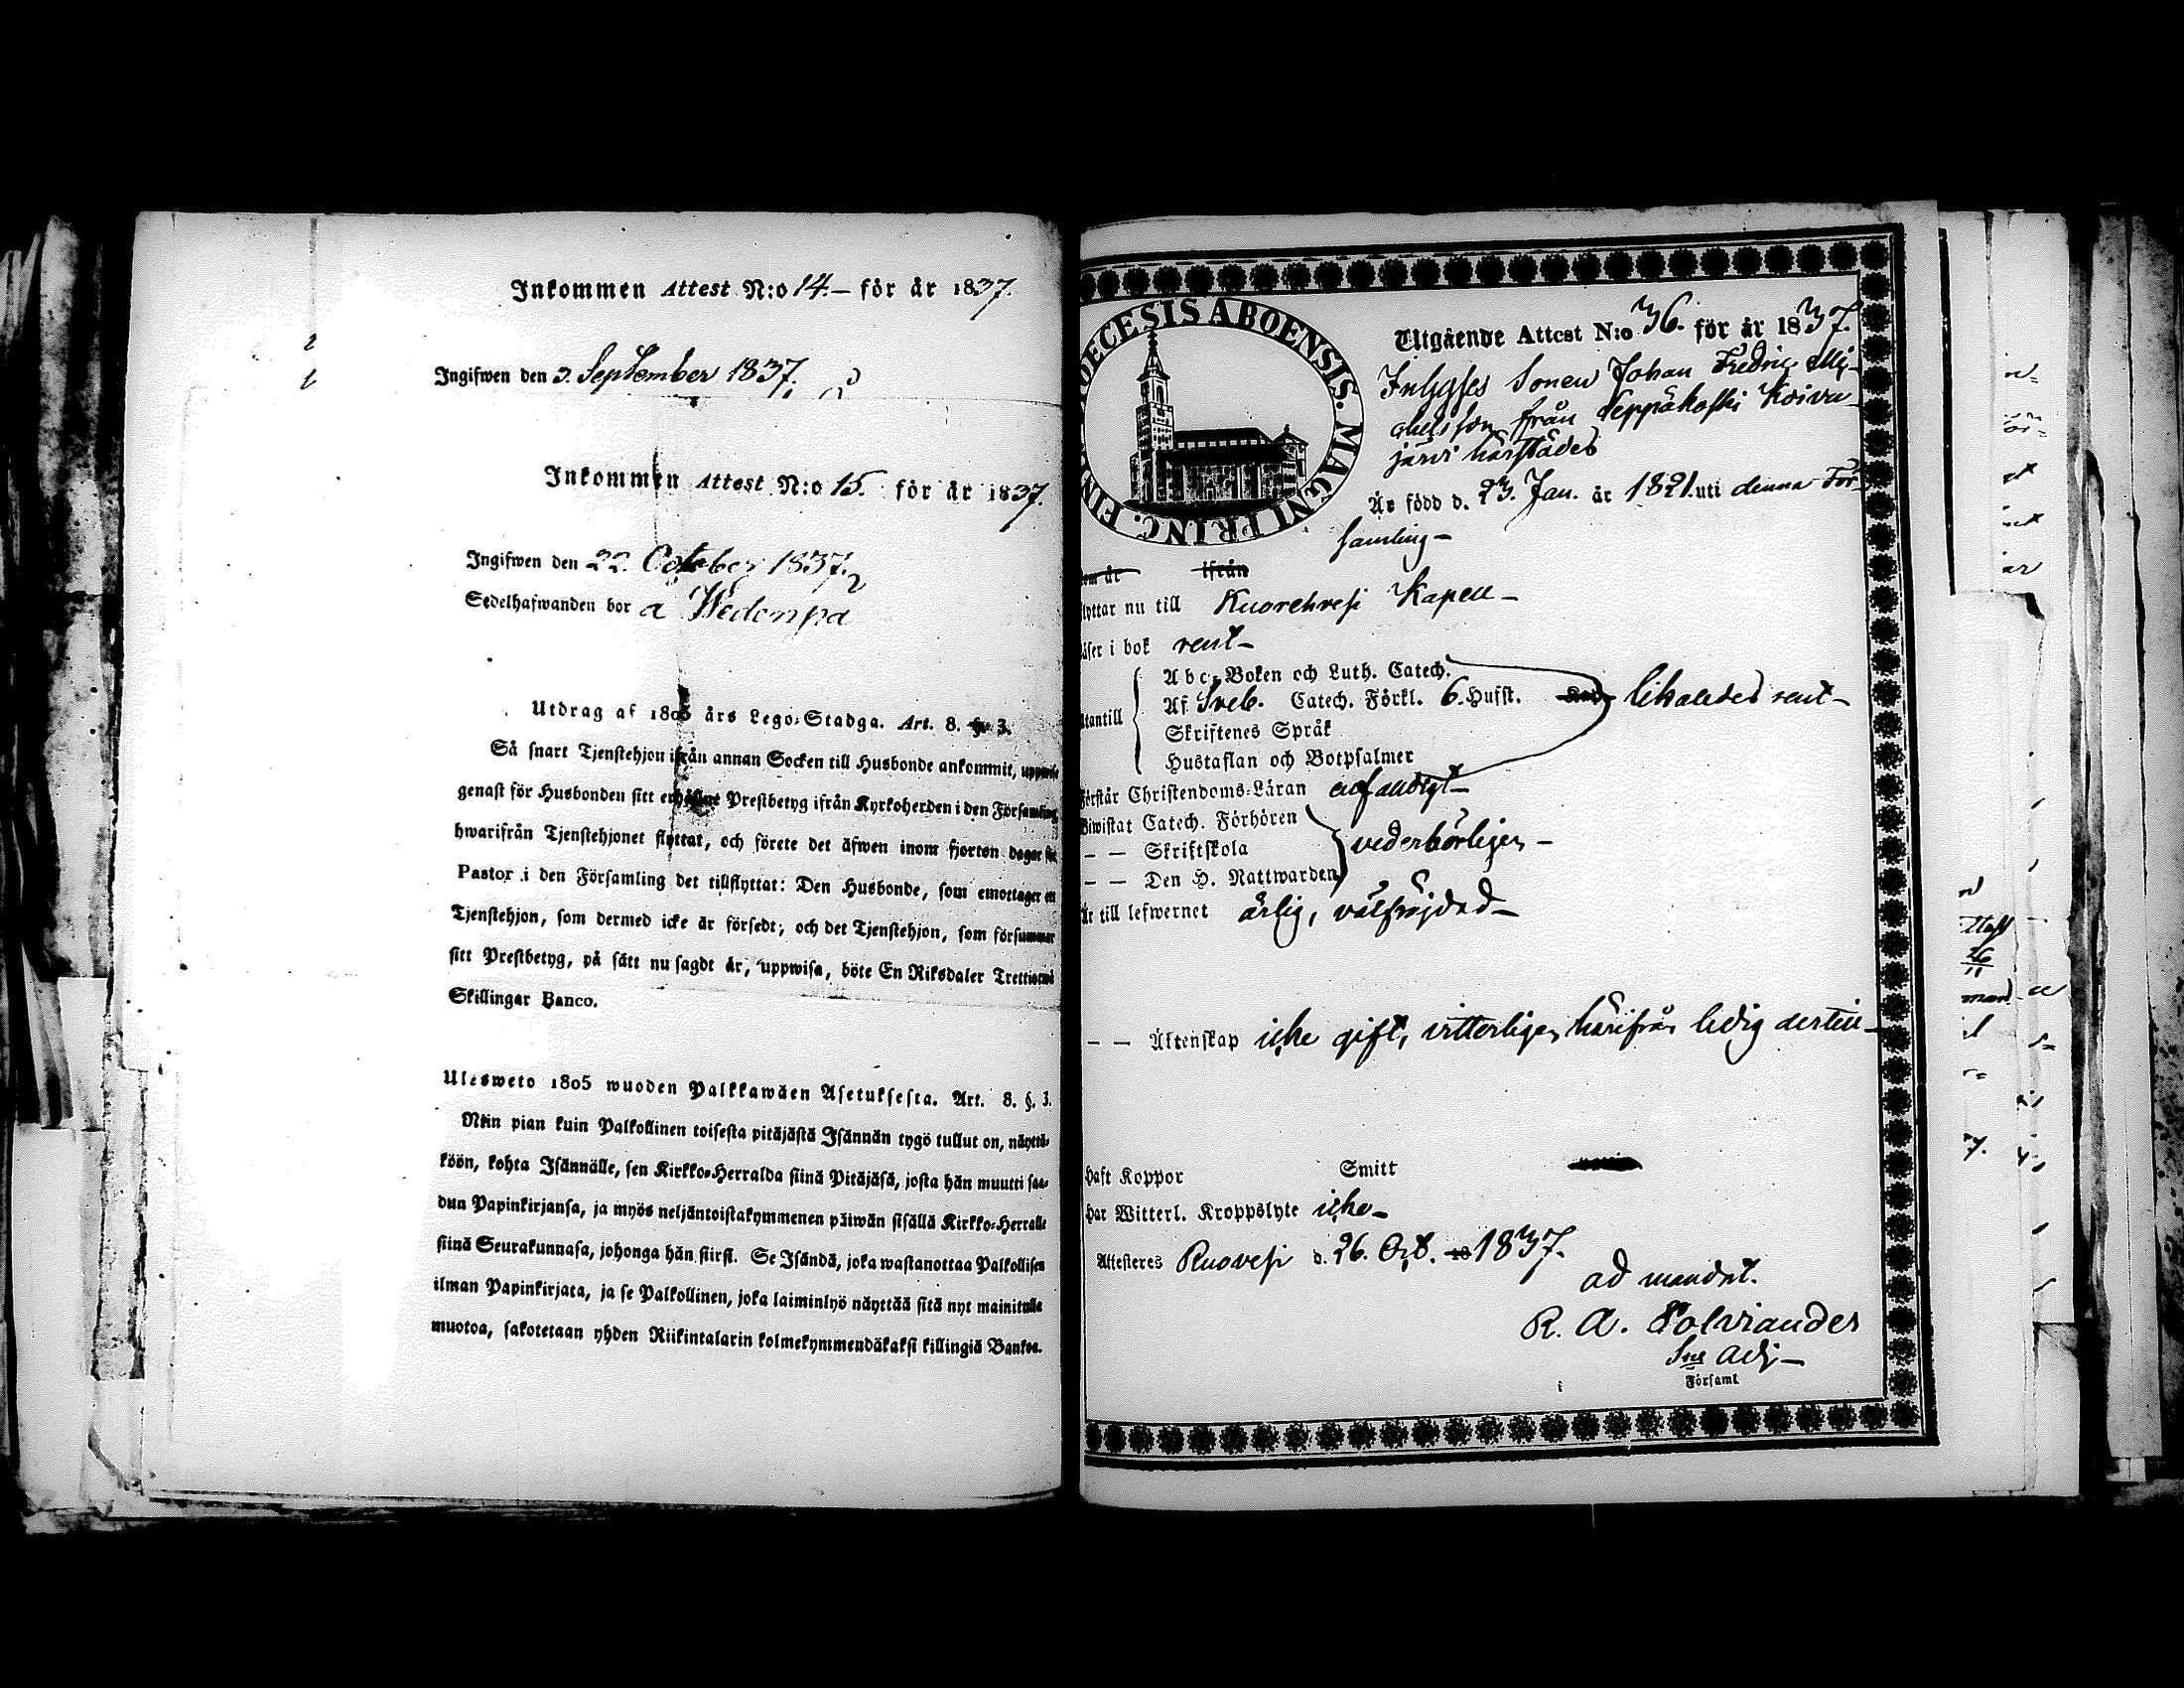 Inkommen Attest N:o 14.— för år 1837.
Ingifwen den 3. September 1837.
Inkommen Attest N:o 15. för år 1837.
Ingifwen den 22. October 1837.
Sedelhafwanden bor a Wedenpa
Utdrag af 1805 års Lego-Stadga. Art. 8. §. 3.
Så snart Tjenstehjon ifrån annan Socken till Husbonde ankommit, uppwise
genast för Husbonden sitt erhållne Prestbetyg ifrån Kyrkoherden i den Församling
hwarifrån Tjenstehjonet flyttat, och förete det äfwen inom fjorton dagar för
Pastor i den Församling det tillflyttat: Den Husbonde, som emottager ett
Tjenstehjon, som dermed icke är försedt; och det Tjenstehjon, som försummar
sitt Prestbetyg, på sätt nu sagdt är, uppwisa, böte En Riksdaler Trettiotwå
Skillingar Banco.
Ulesweto 1805 wuoden Palkkawäen Asetuksesta. Art. 8. §. 3.
Niin pian kuin Palkollinen toisesta pitäjästä Isännän tygö tullut on, näyttä-
köön, kohta Isännälle, sen Kirkko-Herralda siinä Pitäjäsä, josta hän muutti saa-
dun Papinkirjansa, ja myös neljäntoistakymmenen päiwän sisällä Kirkko-Herralle
siinä Seurakunnasa, johonga hän siirsi. Se Isändä, joka wastanottaa Palkollisen
ilman Papinkirjata, ja se Palkollinen, joka laiminlyö näyttää sitä nyt mainitulla
muotoa, sakotetaan yhden Riikintalarin kolmekymmendäkaksi killingiä Bankoa.
DIOECESIS ABOENSIS. MAGNI PRINC. FINL
Utgående Attest N:o 36. för år 1837.
Inhyses Sonen Johan Fredric Mi-
chelsson från Seppäkoski Koivu-
järvi härstädes
Är född d. 23. Jan. år 1821. uti denna För-
samling—
om år ifrån
flyttar nu till Kuorehvesi Kapell—
läser i bok rent—
Abc-Boken och Luth. Catech.
utantill Af Sveb. Catech. Förkl. 6. Hufst. likaledes rent—
Skriftenes Språk
Hustaflan och Botpsalmer
Förstår Christendoms-Läran enfaldigt—
Biwistat Catech. Förhören
— — Skriftskola vederbörligen—
— — Den H. Nattwarden
Är till lefwernet ärlig, välfrejdad—
— — Äktenskap icke gift, vitterligen härifrån ledig dertill—
Haft Koppor Smitt
Har Witterl. Kroppslyte icke—
Attesteres Ruovesi d. 26. Oct. 18 1837.
ad mandat.
R. A. Polviander
Sns Adj—
i Församl.